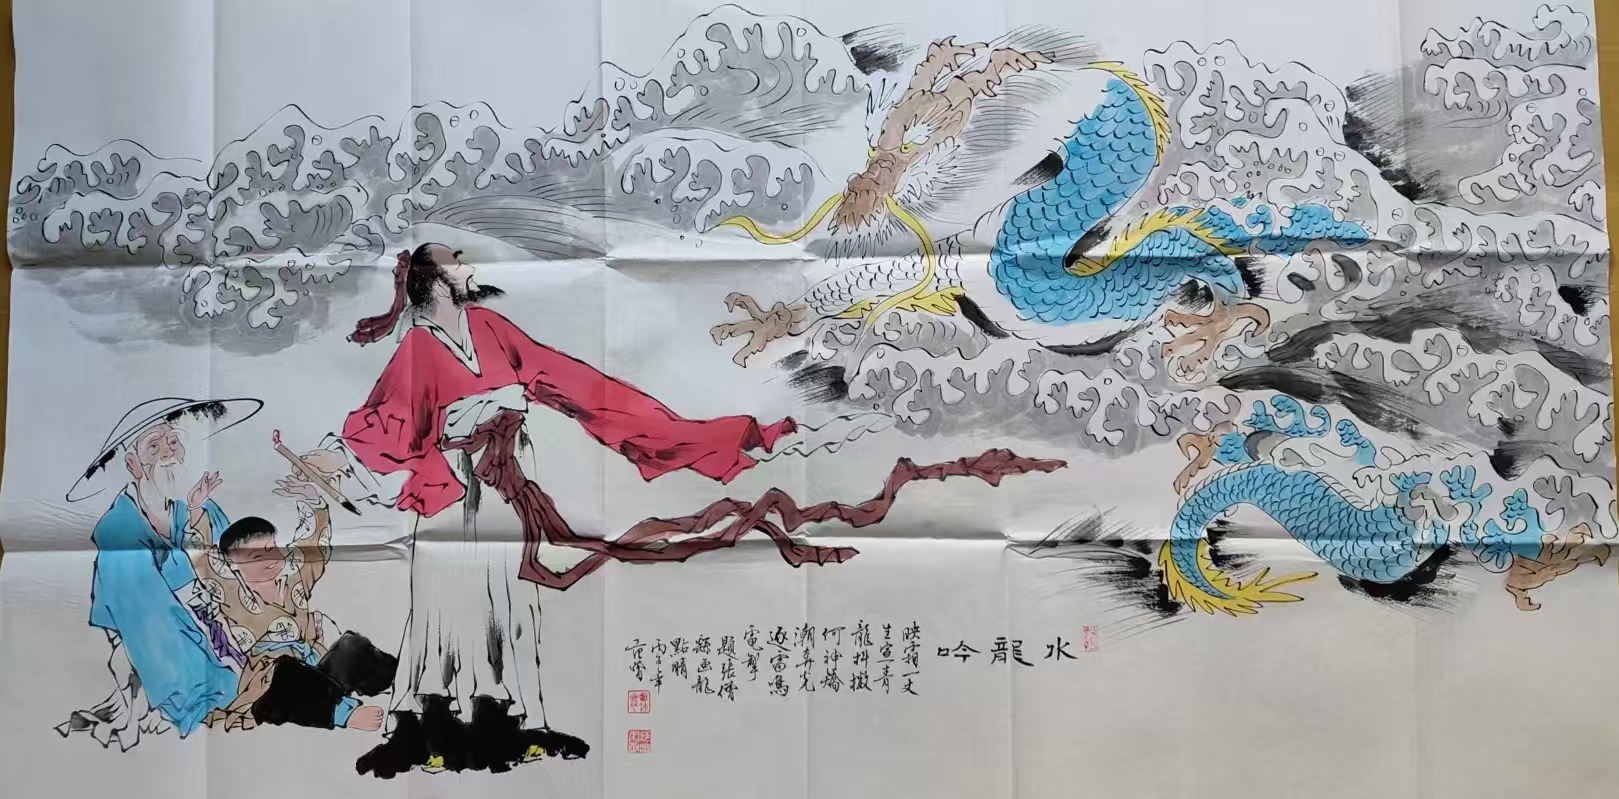 水龍吟
映霜一丈
生宣青
龍抖擻
何神矯
潮奔光
逐雷鳴
電擊
題張僧
繇画龍
點睛
丙子年
范曾